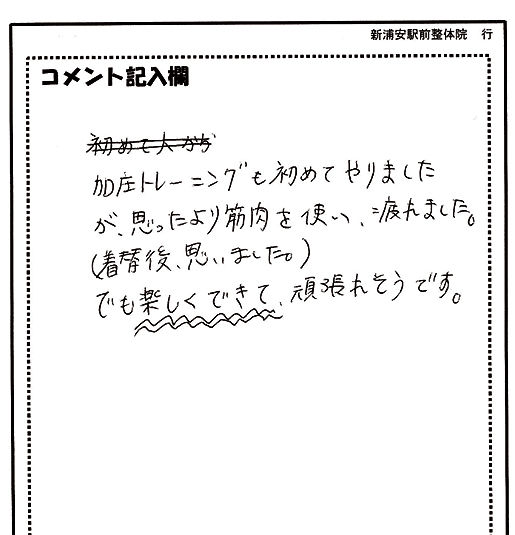 新浦安駅前整体院 行
コメント記入欄
初めて人から
加圧トレーニングも初めてやりました
が、思ったより筋肉を使い、疲れました。
(着替後、思いました。)
でも楽しくできて、頑張れそうです。